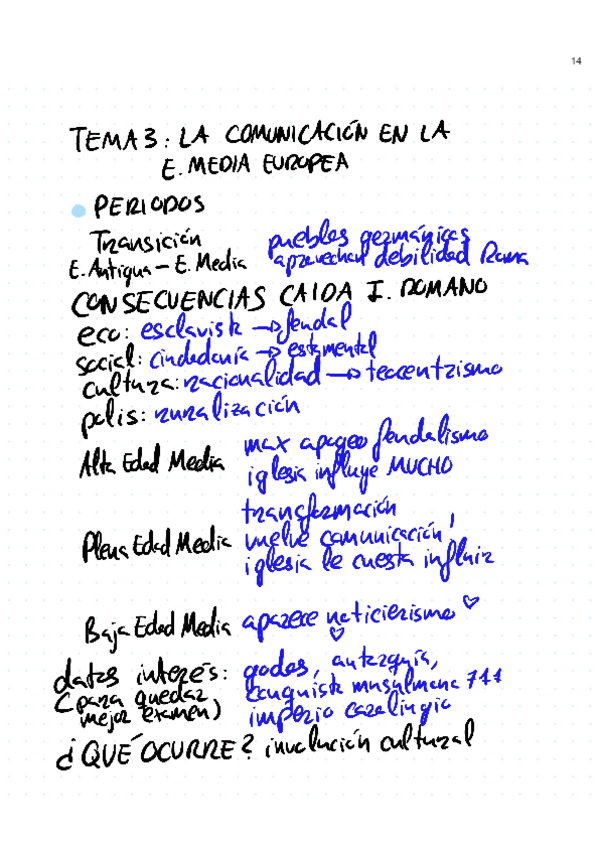 14
TEMA 3: LA COMUNICACIÓN EN LA
E. MEDIA EUROPEA
PERIODOS
Transición
E. Antigua - E. Media
pueblos germánicos
aprovechan debilidad Roma
CONSECUENCIAS CAIDA I. ROMANO
eco: esclavista → feudal
social: ciudadanía → estamental
cultura: racionalidad → teocentrismo
polis: ruralización
Alta Edad Media
max apogeo feudalismo
iglesia influye MUCHO
Plena Edad Media
transformación
vuelve comunicación,
iglesia le cuesta influir
Baja Edad Media aparece noticierismo ♡
♡
datos interés: godos, autarquía,
(para quedar conquista musulmana 711
mejor examen) imperio carolingio
¿QUÉ OCURRE? involución cultural